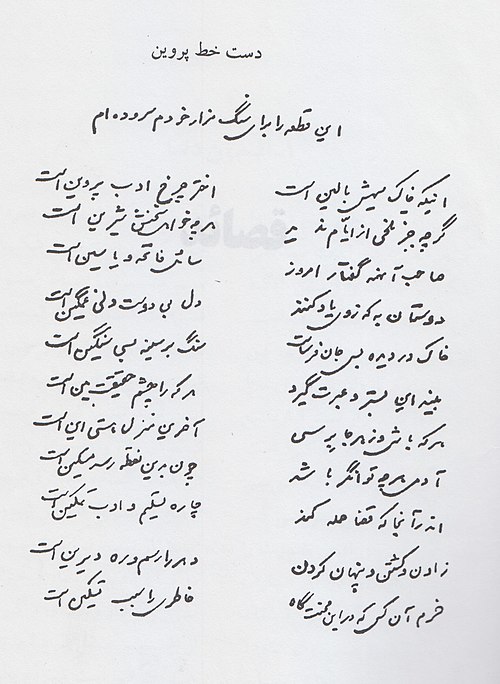 دست خط پروین
این قطعه را برای سنگ مزار خودم سروده ام
اینکه خاک سیهش بالین است اختر چرخ ادب پروین است
گرچه جز تلخی از ایام ندید هرچه خواهی سخنش شیرین است
صاحب آنهمه گفتار امروز سائل فاتحه و یاسین است
دوستان به که ز وی یاد کنند دل بی دوست دلی غمگین است
خاک در دیده بسی جان فرساست سنگ بر سینه بسی سنگین است
بیند این بستر و عبرت گیرد هر که را چشم حقیقت بین است
هر که باشی و ز هر جا برسی آخرین منزل هستی این است
آدمی هر چه توانگر باشد چون بدین نقطه رسد مسکین است
اندر آنجا که قضا حمله کند چاره تسلیم و ادب تمکین است
زادن و کشتن و پنهان کردن دهر را رسم و ره دیرین است
خرم آن کس که در این محنت گاه خاطری را سبب تسکین است